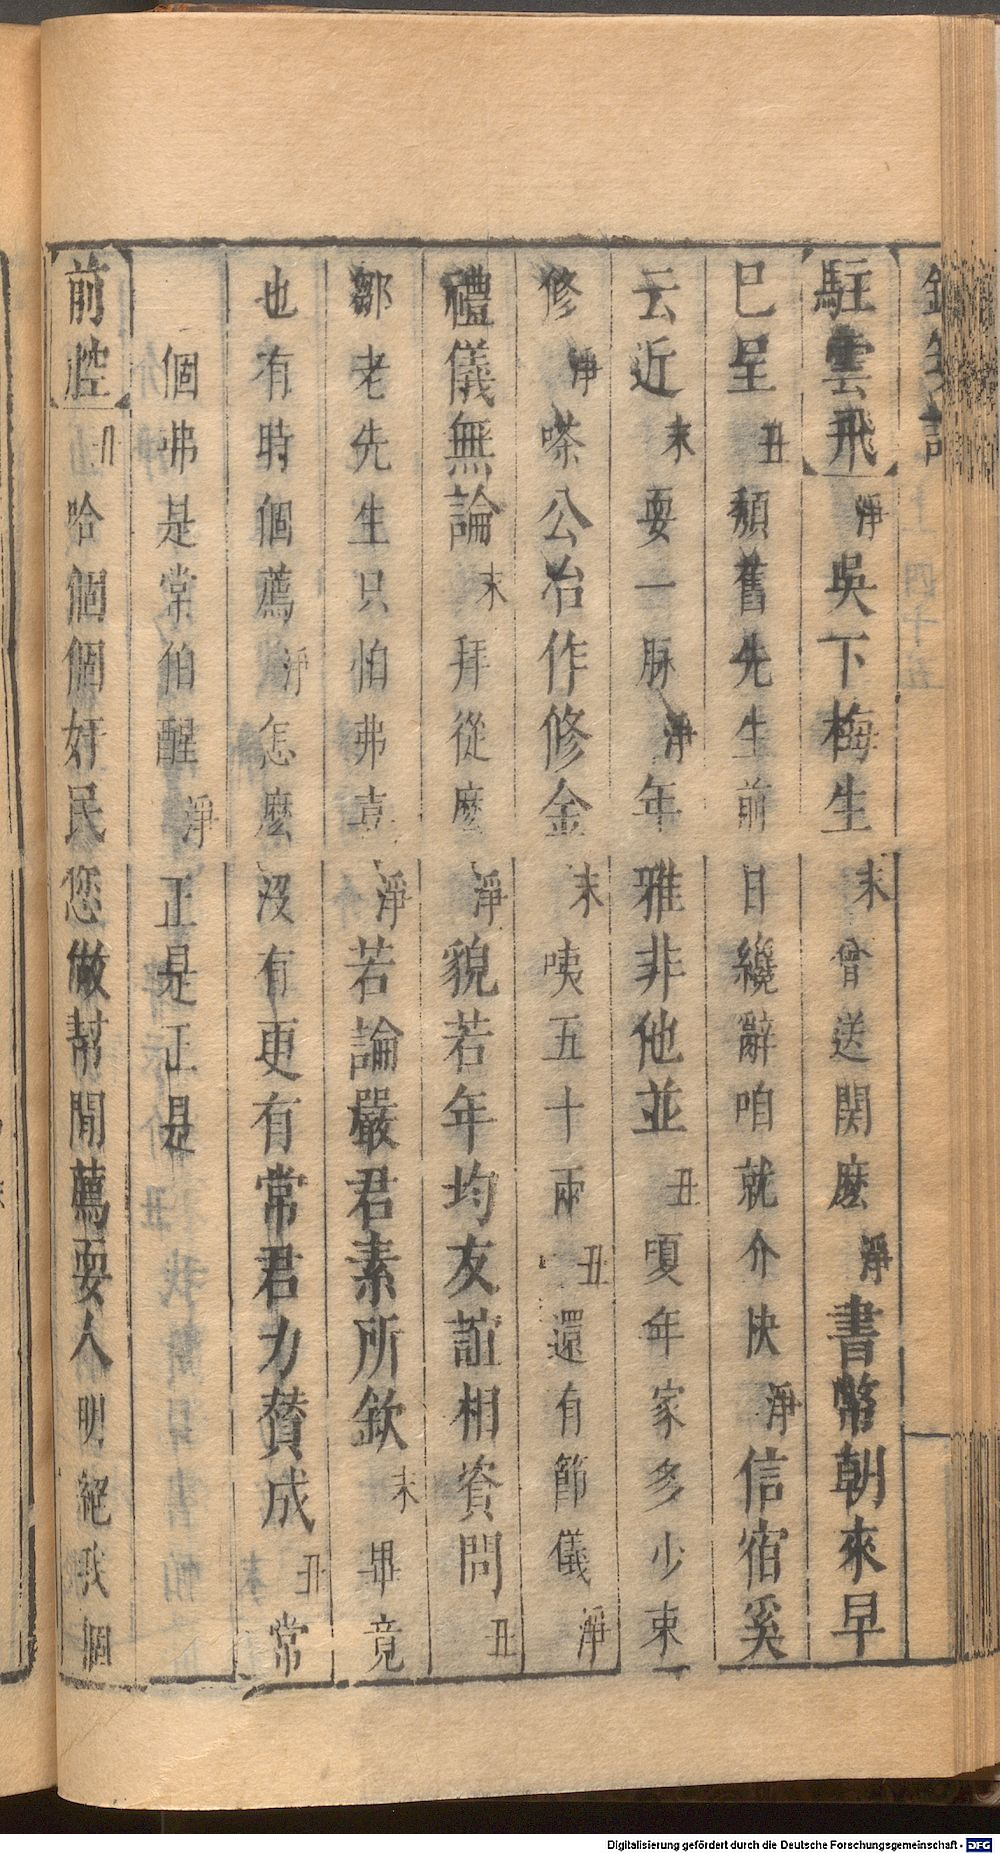 駐雲飛 淨 吳下梅生 末 曾送関麽 淨 書幣朝來早
巳呈 丑 頹舊先生前日纔辭咱就介快 淨 信宿奚
云近 末 耍一脉 淨 年雅非他並 丑 頃年家多少束
修 淨 嗏公冶作修金 末 咦五十兩 丑 還有節儀 淨
禮儀無論 末 拜從麽 淨 貌若年均友誼相資問 丑
鄒老先生只怕弗喜 淨 若論嚴君素所欽 末 畢竟
也有時個薦 淨 怎麽沒有更有常君力贊成 丑 常
個弗是常伯醒 淨 正是正是
前腔 丑 哈個個奸民您做幫閒薦耍人明絕我個
四十五
Digitalisierung gefördert durch die Deutsche Forschungsgemeinschaft - DFG